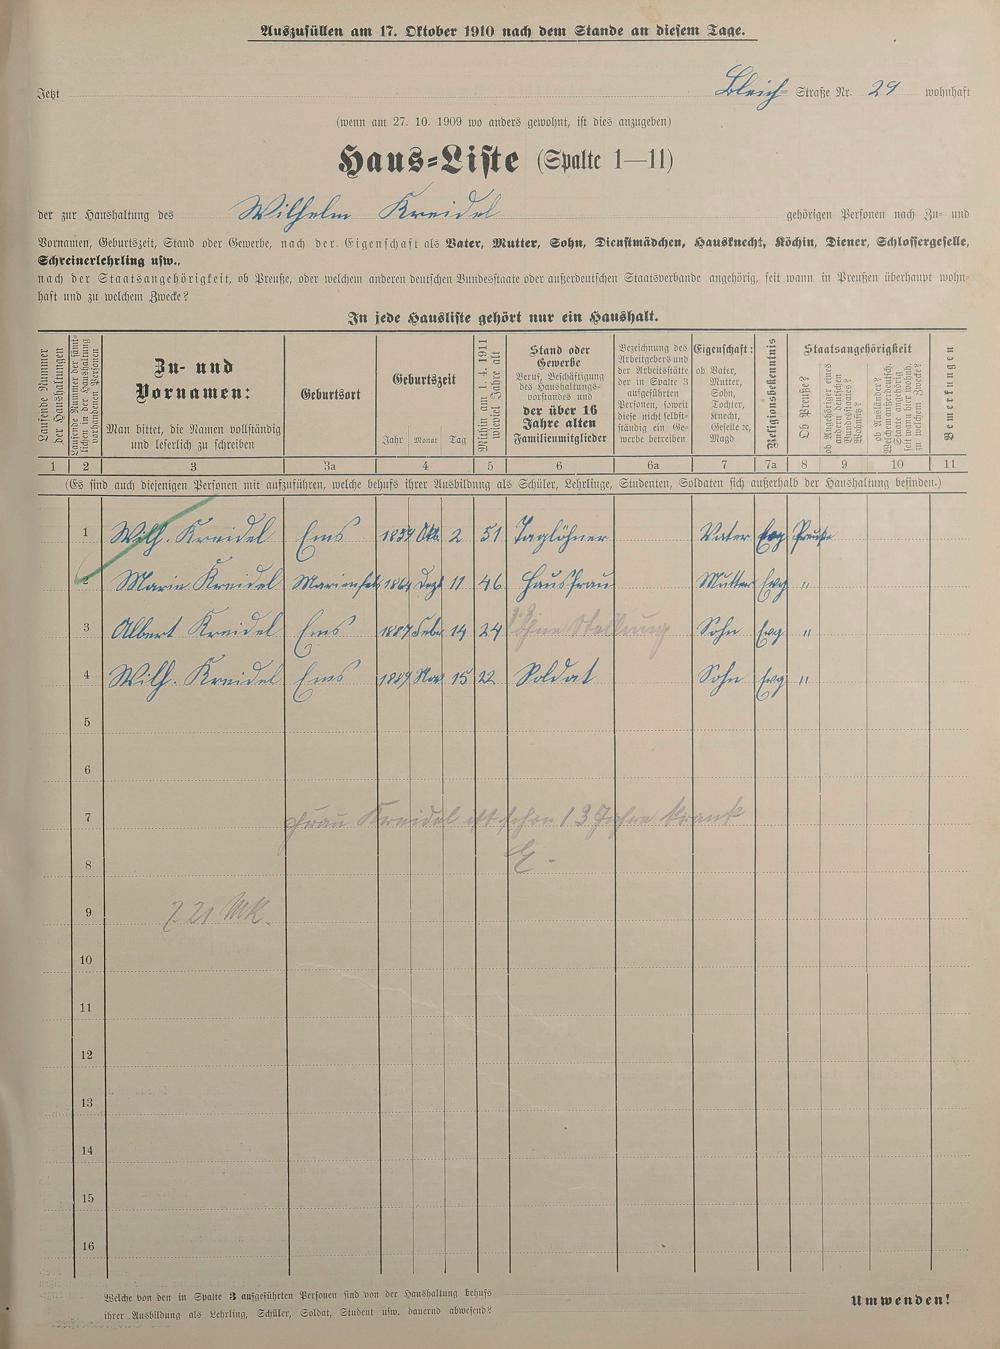 Auszufüllen am 17. Oktober 1910 nach dem Stande an diesem Tage.
Jetzt Bleich Straße Nr. 29 wohnhaft
(wenn am 27. 10. 1909 wo anders gewohnt, ist dies anzugeben)
Haus=Liste (Spalte 1—11)
der zur Haushaltung des Wilhelm Kreidel gehörigen Personen nach Zu= und
Vornamen, Geburtszeit, Stand oder Gewerbe, nach der Eigenschaft als Vater, Mutter, Sohn, Dienstmädchen, Hausknecht, Köchin, Diener, Schlossergeselle,
Schreinerlehrling usw.,
nach der Staatsangehörigkeit, ob Preuße, oder welchem anderen deutschen Bundesstaate oder außerdeutschen Staatsverbande angehörig, seit wann in Preußen überhaupt wohn=
haft und zu welchem Zwecke?
In jede Hausliste gehört nur ein Haushalt.
Laufende Nummer der Haushaltungen
Laufende Nummer der sämtlichen in der Haushaltung vorhandenen Personen
Zu= und
Vornamen:
Man bittet, die Namen vollständig
und leserlich zu schreiben
Geburtsort
Geburtszeit
Jahr Monat Tag
Mithin am 1. 4. 1911 wieviel Jahre alt
Stand oder
Gewerbe
Beruf, Beschäftigung
des Haushaltungs=
vorstandes und
der über 16
Jahre alten
Familienmitglieder
Bezeichnung des
Arbeitgebers und
der Arbeitsstätte
der in Spalte 3
aufgeführten
Personen, soweit
diese nicht selbst=
ständig ein Ge=
werbe betreiben
Eigenschaft:
ob Vater,
Mutter,
Sohn,
Tochter,
Knecht,
Geselle ec,
Magd
Religionsbekenntnis
Staatsangehörigkeit
Ob Preuße?
ob Angehöriger eines
andern deutschen
Bundesstaates?
Wohnsitz?
ob Ausländer?
Welchem außerdeutsch.
Staate angehörig
seit wann hier wohnh.
zu welchem Zwecke?
Bemerkungen
1 2 3 3a 4 5 6 6a 7 7a 8 9 10 11
(Es sind auch diejenigen Personen mit aufzuführen, welche behufs ihrer Ausbildung als Schüler, Lehrlinge, Studenten, Soldaten sich außerhalb der Haushaltung befinden.)
1 Wilh. Kreidel Ems 1859 Okt. 2 51 Taglöhner Vater Evg Preuße
2 Marie Kreidel Marienfels 1864 Dezb 11 46 Hausfrau Mutter Evg "
3 Albert Kreidel Ems 1887 Febr 14 24 ohne Stellung Sohn Evg "
4 Wilh. Kreidel Ems 1889 Nov 15 22 Soldat Sohn Evg "
5
6
7 Frau Kreidel ist schon 13 Jahre krank
8
9 721 Mk.
10
11
12
13
14
15
16
Welche von den in Spalte 3 aufgeführten Personen sind von der Haushaltung behufs
ihrer Ausbildung als Lehrling, Schüler, Soldat, Student usw. dauernd abwesend?
Umwenden!